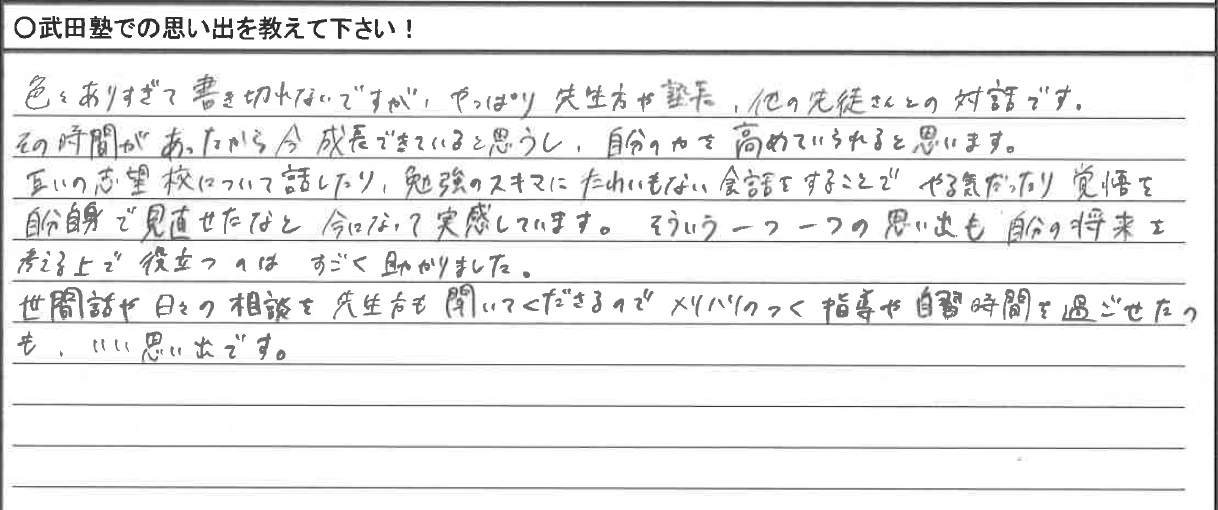 ○武田塾での思い出を教えて下さい！
色々ありすぎて書き切れないですが、やっぱり先生方や塾長、他の先徒さんとの対話です。
その時間があったから今成長できていると思うし、自分の力を高めていられると思います。
互いの志望校について話したり、勉強のスキマにたわいもない会話をすることでやる気だったり覚悟を
自分自身で見直せたなと今になって実感しています。そういう一つ一つの思い出も自分の将来を
考える上で役立つのはすごく助かりました。
世間話や日々の相談を先生方も聞いてくださるのでメリハリのつく指導や自習時間を過ごせたの
も、いい思い出です。